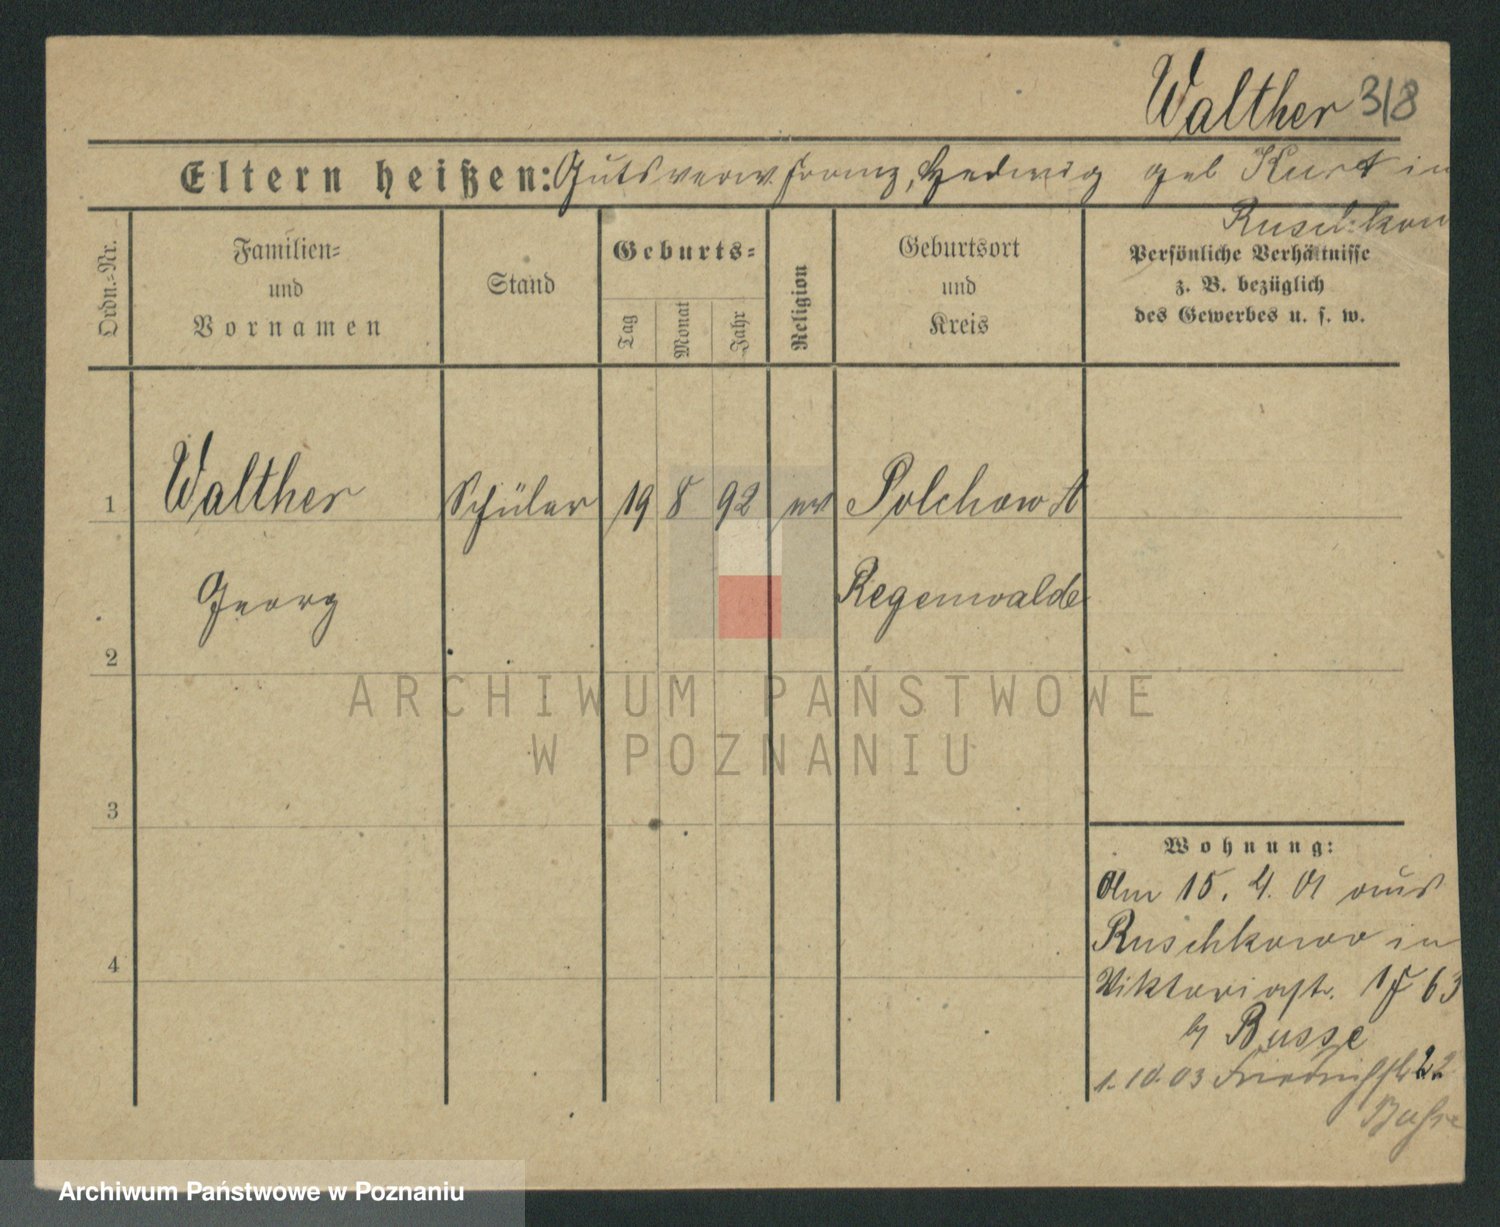 Walther 318
Eltern heißen: Gutsverw. Franz, Hedwig geb Kurt in
Ruschkow
Ordn.-Nr.
Familien-
und
Vornamen
Stand
Geburts-
Tag
Monat
Jahr
Religion
Geburtsort
und
Kreis
Persönliche Verhältnisse
z. B. bezüglich
des Gewerbes u. s. w.
1 Walther Schüler 19 8 92 ev Polchow A
Georg Regenwalde
2
3
4
Wohnung:
Am 15. 4. 01 aus
Ruschkowo in
Viktoriastr. 17 63
b/ Busse
1. 10. 03 Friedrichstr 22
Busse
ARCHIWUM PAŃSTWOWE
W POZNANIU
Archiwum Państwowe w Poznaniu